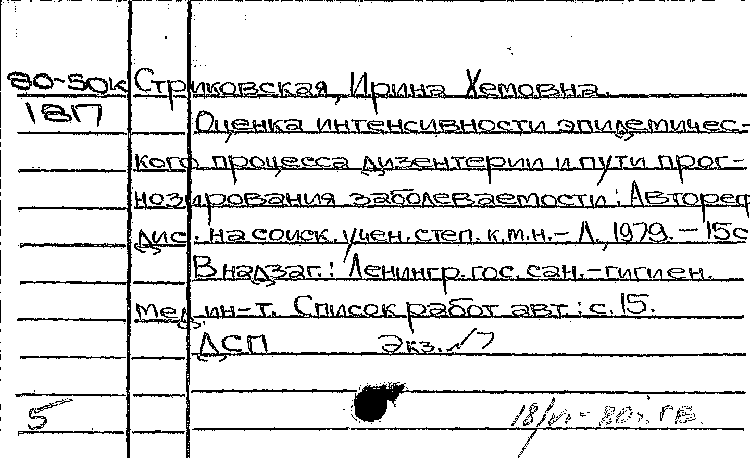 80-50к Стриковская, Ирина Хемовна.
18П Оценка интенсивности эпидемичес-
кого процесса дизентерии и пути прог-
нозирования заболеваемости: Автореф.
дис. на соиск. учен. степ. к.м.н. - Л., 1979. - 15с
В надзаг.: Ленингр. гос. сан.-гигиен.
мед. ин-т. Список работ авт.: с. 15.
ДСП Экз. №
5 18/VI - 80г. ГБ.